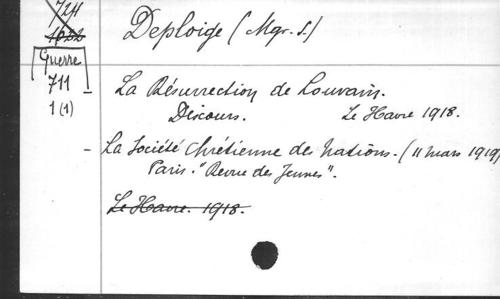 724
1022
Guerre
711
1 (1)
Deploige (Mgr. S.)
- La Résurrection de Louvain.
Discours. Le Havre 1918.
- La Société Chrétienne des Nations. (11 mars 1919)
Paris. "Revue des Jeunes".
Le Havre. 1918.